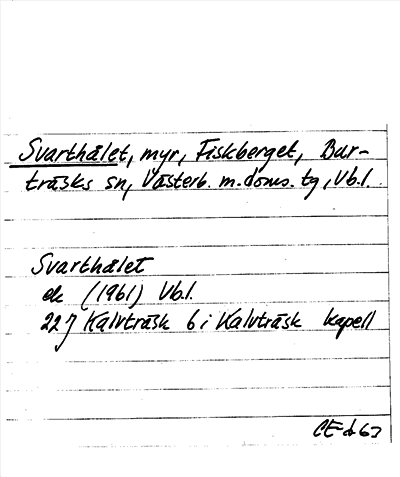 Svarthålet, myr, Fiskberget, Bur-
träsks sn, Västerb. m. doms. tg, Vb.l.
Svarthålet
ek (1961) Vb.l.
22J Kalvträsk 6 i Kalvträsk kapell